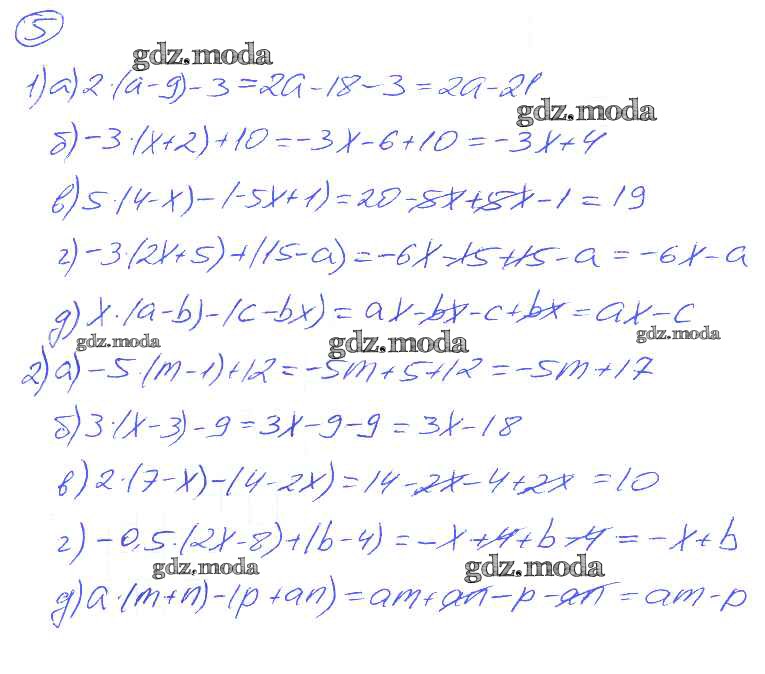 5
gdz.moda
1) а) 2·(a-9)-3=2a-18-3=2a-21
gdz.moda
б) -3·(x+2)+10=-3x-6+10=-3x+4
в) 5·(4-x)-(-5x+1)=20-5x+5x-1=19
г) -3·(2x+5)+(15-a)=-6x-15+15-a=-6x-a
д) x·(a-b)-(c-bx)=ax-bx-c+bx=ax-c
gdz.moda gdz.moda gdz.moda
2) а) -5·(m-1)+12=-5m+5+12=-5m+17
б) 3·(x-3)-9=3x-9-9=3x-18
в) 2·(7-x)-(4-2x)=14-2x-4+2x=10
г) -0,5·(2x-8)+(b-4)=-x+4+b-4=-x+b
gdz.moda gdz.moda
д) a·(m+n)-(p+an)=am+an-p-an=am-p